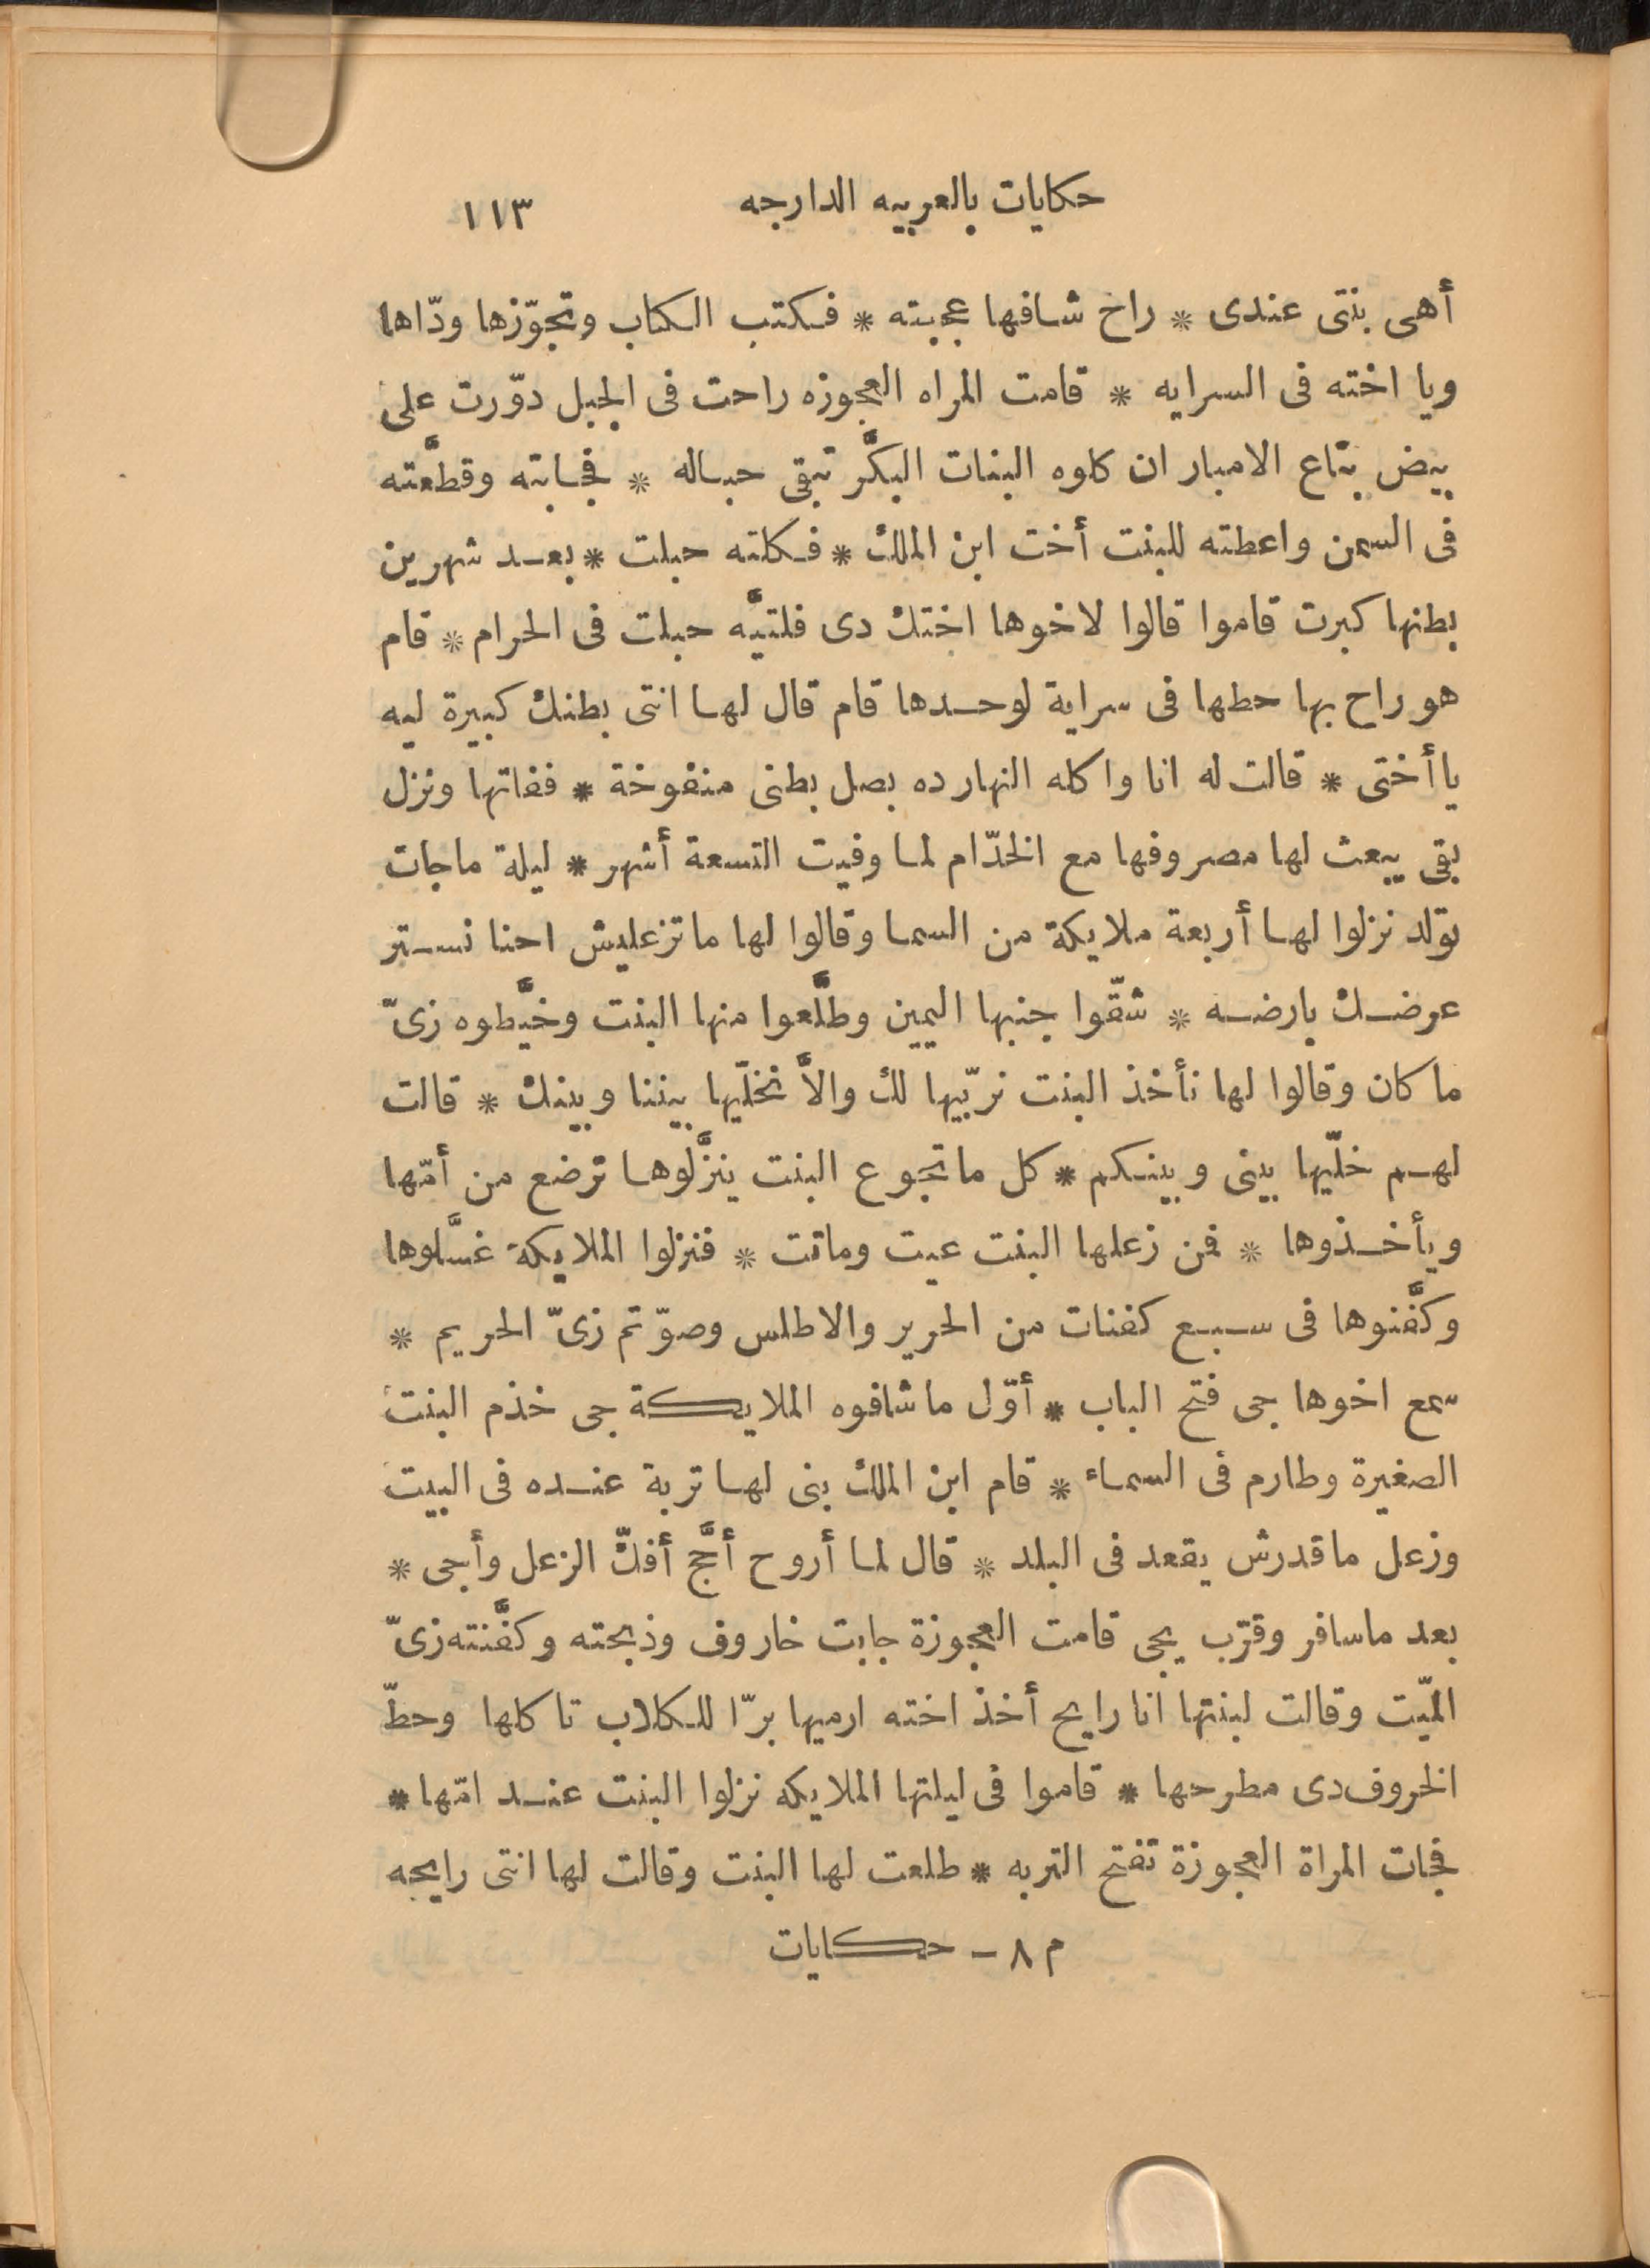 حكايات بالعربيه الدارجه ١١٣
أهى بنتى عندى * راح شافها عجبته * فكتب الكتاب وتجوّزها ودّاها
ويا اخته فى السرايه * قامت المراه العجوزه راحت فى الجبل دوّرت على
بيض بتاع الامبار ان كلوه البنات البكَّر تبقى حباله * فجابته وقطَّعته
فى السمن واعطته للبنت أخت ابن الملك * فكلته حبلت * بعد شهرين
بطنها كبرت قاموا قالوا لاخوها اختك دى فلتيَّه حبلت فى الحرام * قام
هو راح بها حطها فى سراية لوحدها قام قال لها انتى بطنك كبيرة ليه
يا أختى * قالت له انا واكله النهارده بصل بطنى منفوخة * ففاتها ونزل
بقى يبعث لها مصروفها مع الخدّام لما وفيت التسعة أشهر * ليلة ماجات
تولد نزلوا لها أربعة ملايكة من السما وقالوا لها ماتزعليش احنا نستر
عرضك بارضه * شقّوا جنبها اليمين وطلَّعوا منها البنت وخيَّطوه زىّ
ما كان وقالوا لها نأخذ البنت نربّيها لك والاَّ نخلّيها بيننا وبينك * قالت
لهم خلّيها بينى وبينكم * كل ماتجوع البنت ينزَّلوها ترضع من أمّها
ويأخذوها * فمن زعلها البنت عيت وماتت * فنزلوا الملايكة غسَّلوها
وكفَّنوها فى سبع كفنات من الحرير والاطلس وصوّتم زىّ الحريم *
سمع اخوها جى فتح الباب * أوّل ماشافوه الملايكة جى خذم البنت
الصغيرة وطارم فى السماء * قام ابن الملك بنى لها تربة عنده فى البيت
وزعل ماقدرش يقعد فى البلد * قال لما أروح أحَّج أفكّ الزعل وأجى *
بعد ماسافر وقرّب يجى قامت العجوزة جابت خاروف وذبحته وكفَّنته زىّ
الميّت وقالت لبنتها انا رايح أخذ اخته ارميها برّا للكلاب تاكلها وحطّ
الخروف دى مطرحها * قاموا فى ليلتها الملايكه نزلوا البنت عند امّها *
فجات المراة العجوزة تفتح التربه * طلعت لها البنت وقالت لها انتى رايحه
م ٨ - حكايات